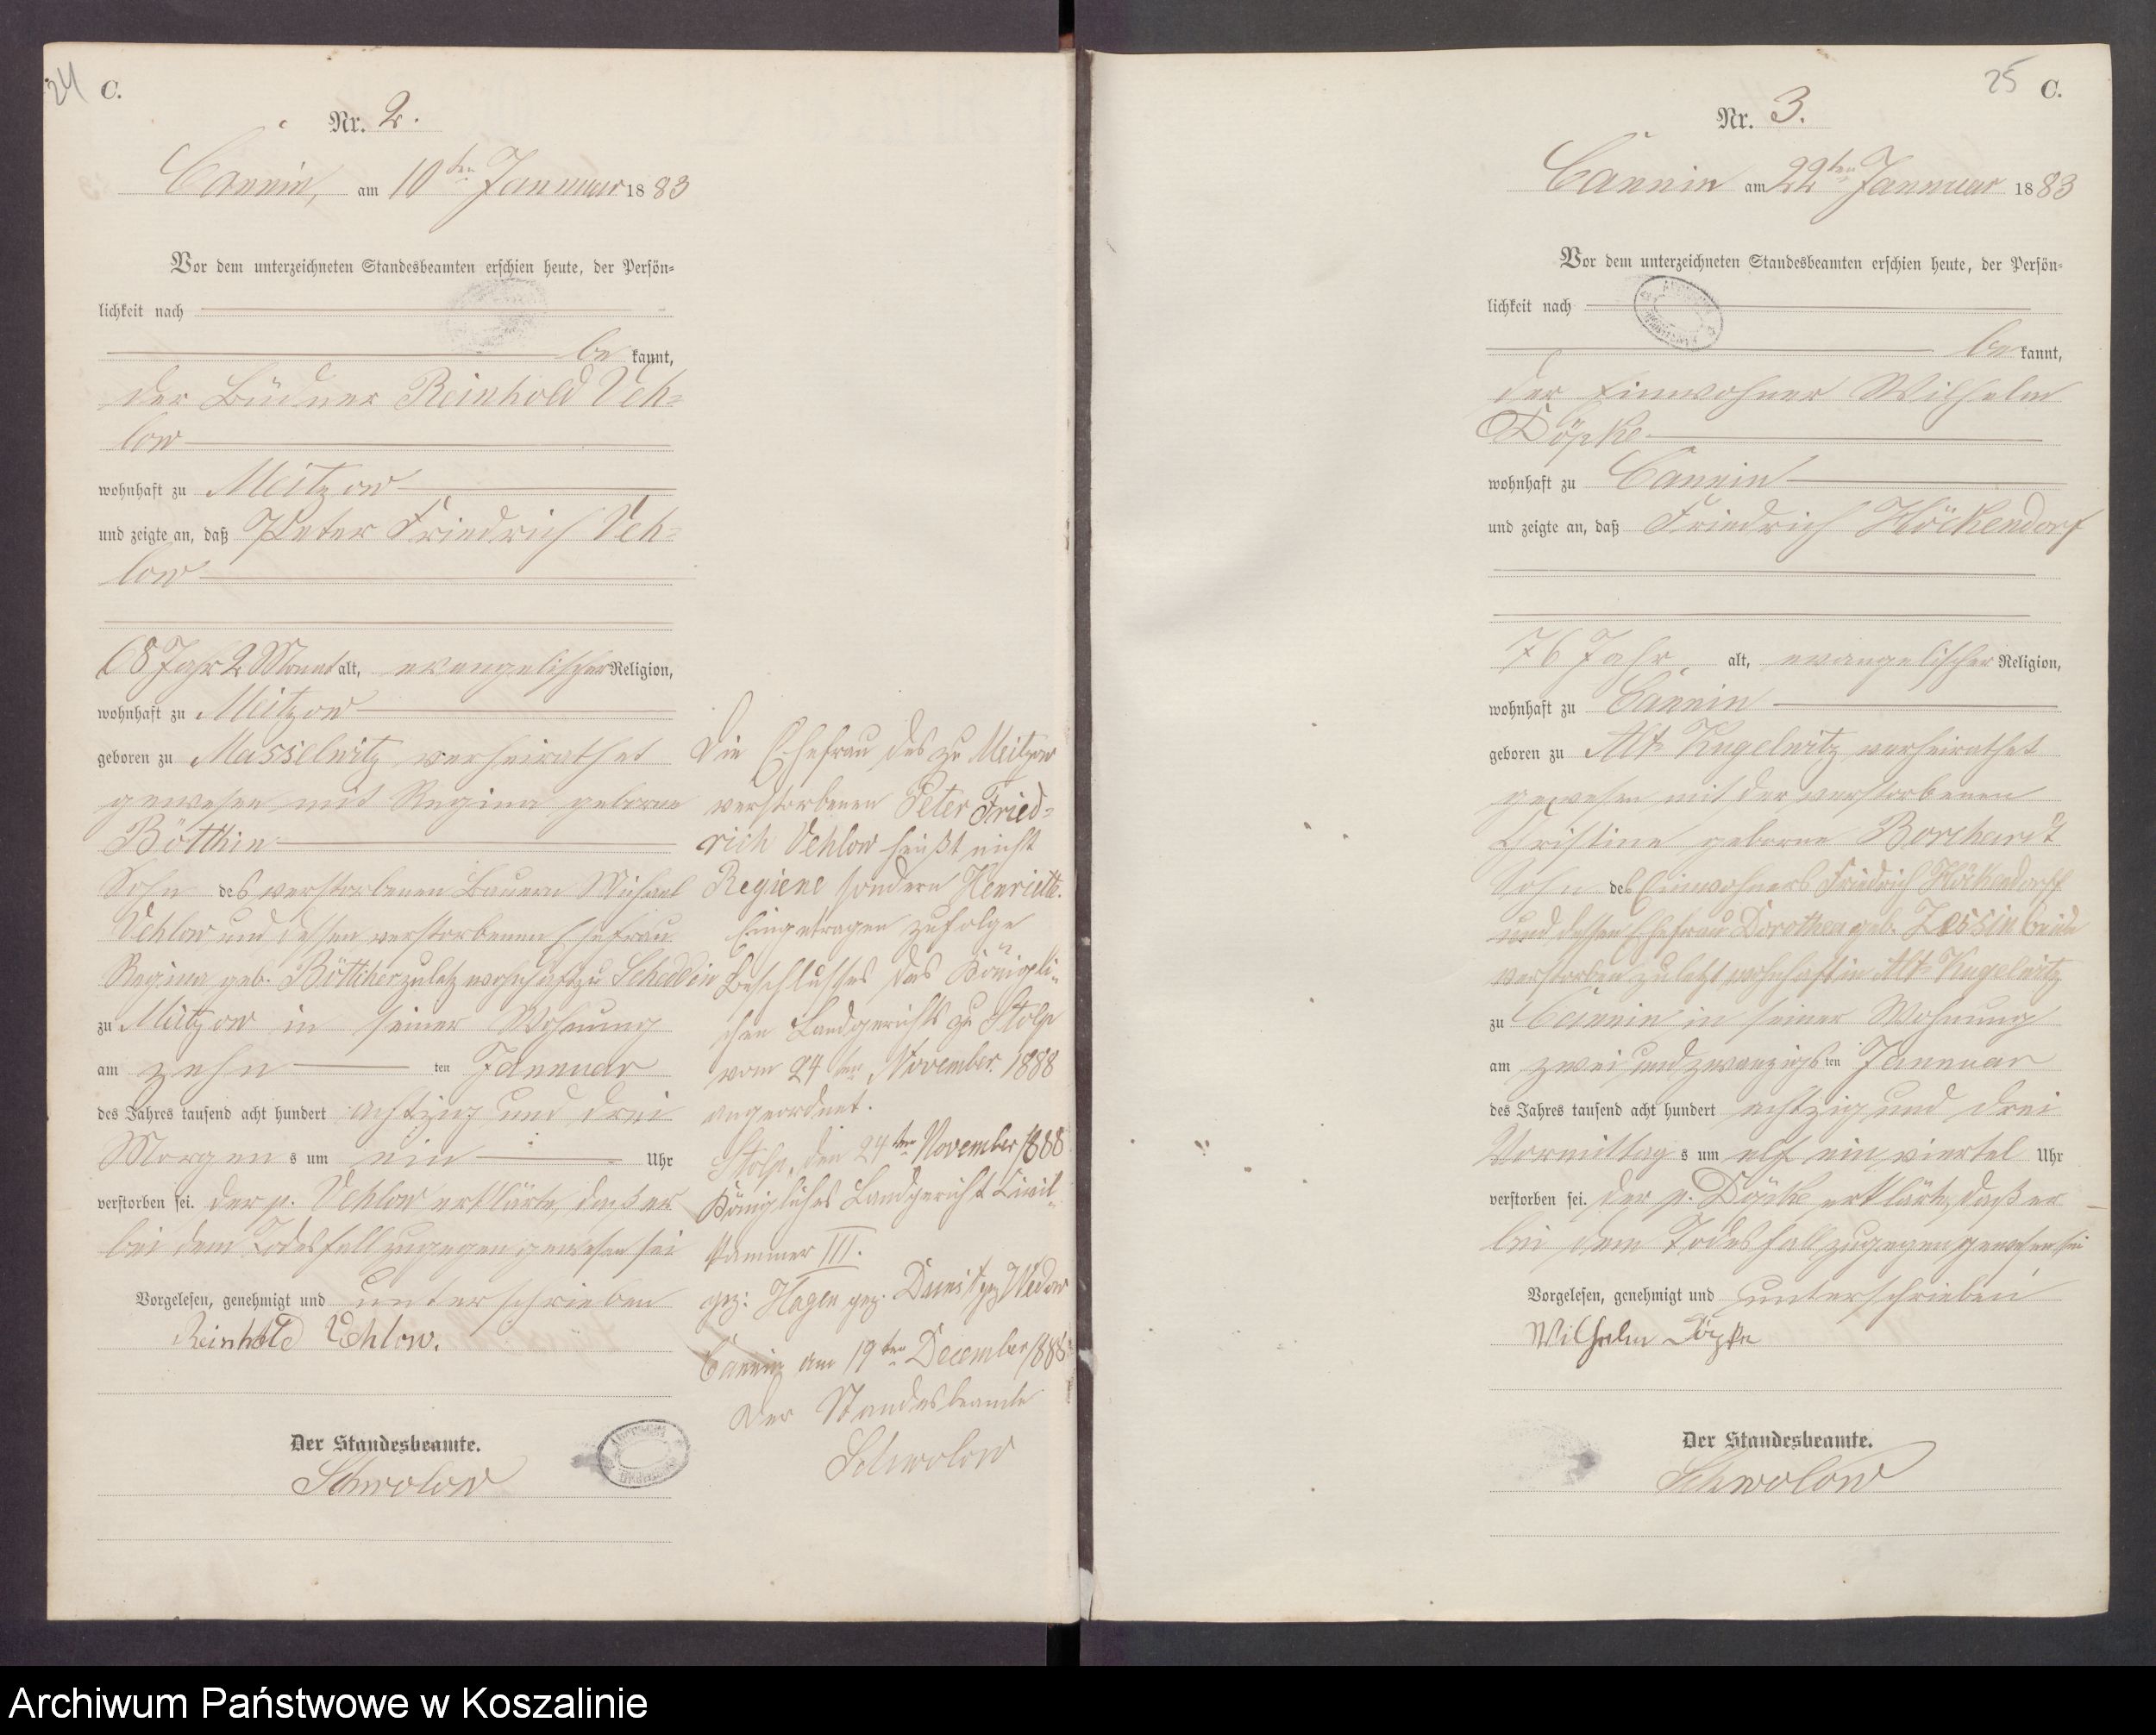 24
C.
Nr. 2.
Cannin, am 10ten Januar 1883
Vor dem unterzeichneten Standesbeamten erschien heute, der Persön-
lichkeit nach
be kannt,
der Büdner Reinhold Veh-
low
wohnhaft zu Meitzow
und zeigte an, daß Peter Friedrich Veh-
low
68 Jahr 2 Monat alt, evangelischer Religion,
wohnhaft zu Meitzow
geboren zu Masselwitz verheirathet
gewesen mit Regina geborne
Sohn des verstorbenen Bauern Michael
Vehlow und dessen verstorbenen Ehefrau
Regina geb. Böttcher zuletz wohnhaft zu Scheddin
zu Meitzow in seiner Wohnung
am zehn ten Januar
des Jahres tausend acht hundert achtzig und drei
Morgen s um ein Uhr
verstorben sei. der p. Vehlow erklärte, daß er
bei dem Todesfall zugegen gewesen sei
Vorgelesen, genehmigt und unterschrieben
Reinhold Vehlow.
Der Standesbeamte.
Schwolow
Die Ehefrau des zu Meitzow
verstorbenen Peter Fried-
rich Vehlow heißt nicht
Regiene sondern Henriette.
Eingetragen zufolge
Beschlusses des Königli-
chen Landgerichts zu Stolp
vom 24ten November 1888
angeordnet.
Stolp, den 24ten November 1888
Königliches Landgericht Civil-
kammer III.
gez: Hagen gez. gez Wedow
Cannin am 19ten December 1888
Der Standesbeamte
Schwolow
25
C.
Nr. 3.
Cannin am 22ten Januar 1883
Vor dem unterzeichneten Standesbeamten erschien heute, der Persön-
lichkeit nach
be kannt,
der Einwohner Wilhelm
Döpke
wohnhaft zu Cannin
und zeigte an, daß Friedrich Höckendorf
76 Jahr alt, evangelischer Religion,
wohnhaft zu Cannin
geboren zu Alt Kugelwitz verheirathet
gewesen mit der verstorbenen
Christine geborne Borchardt
Sohn des Einwohners Friedrich Höckendorf
und dessen Ehefrau Dorothea geb. Zessin beide
verstorben zuletzt wohnhaft in Alt Kugelwitz
zu Cannin in seiner Wohnung
am zwei und zwanzigs ten Januar
des Jahres tausend acht hundert achtzig und drei
Vormittag s um elf ein viertel Uhr
verstorben sei. der p. Döpke erklärte, daß er
bei dem Todesfall zugegen gewesen sei
Vorgelesen, genehmigt und unterschrieben
Wilhelm Döpke
Der Standesbeamte.
Schwolow
Archiwum Państwowe w Koszalinie